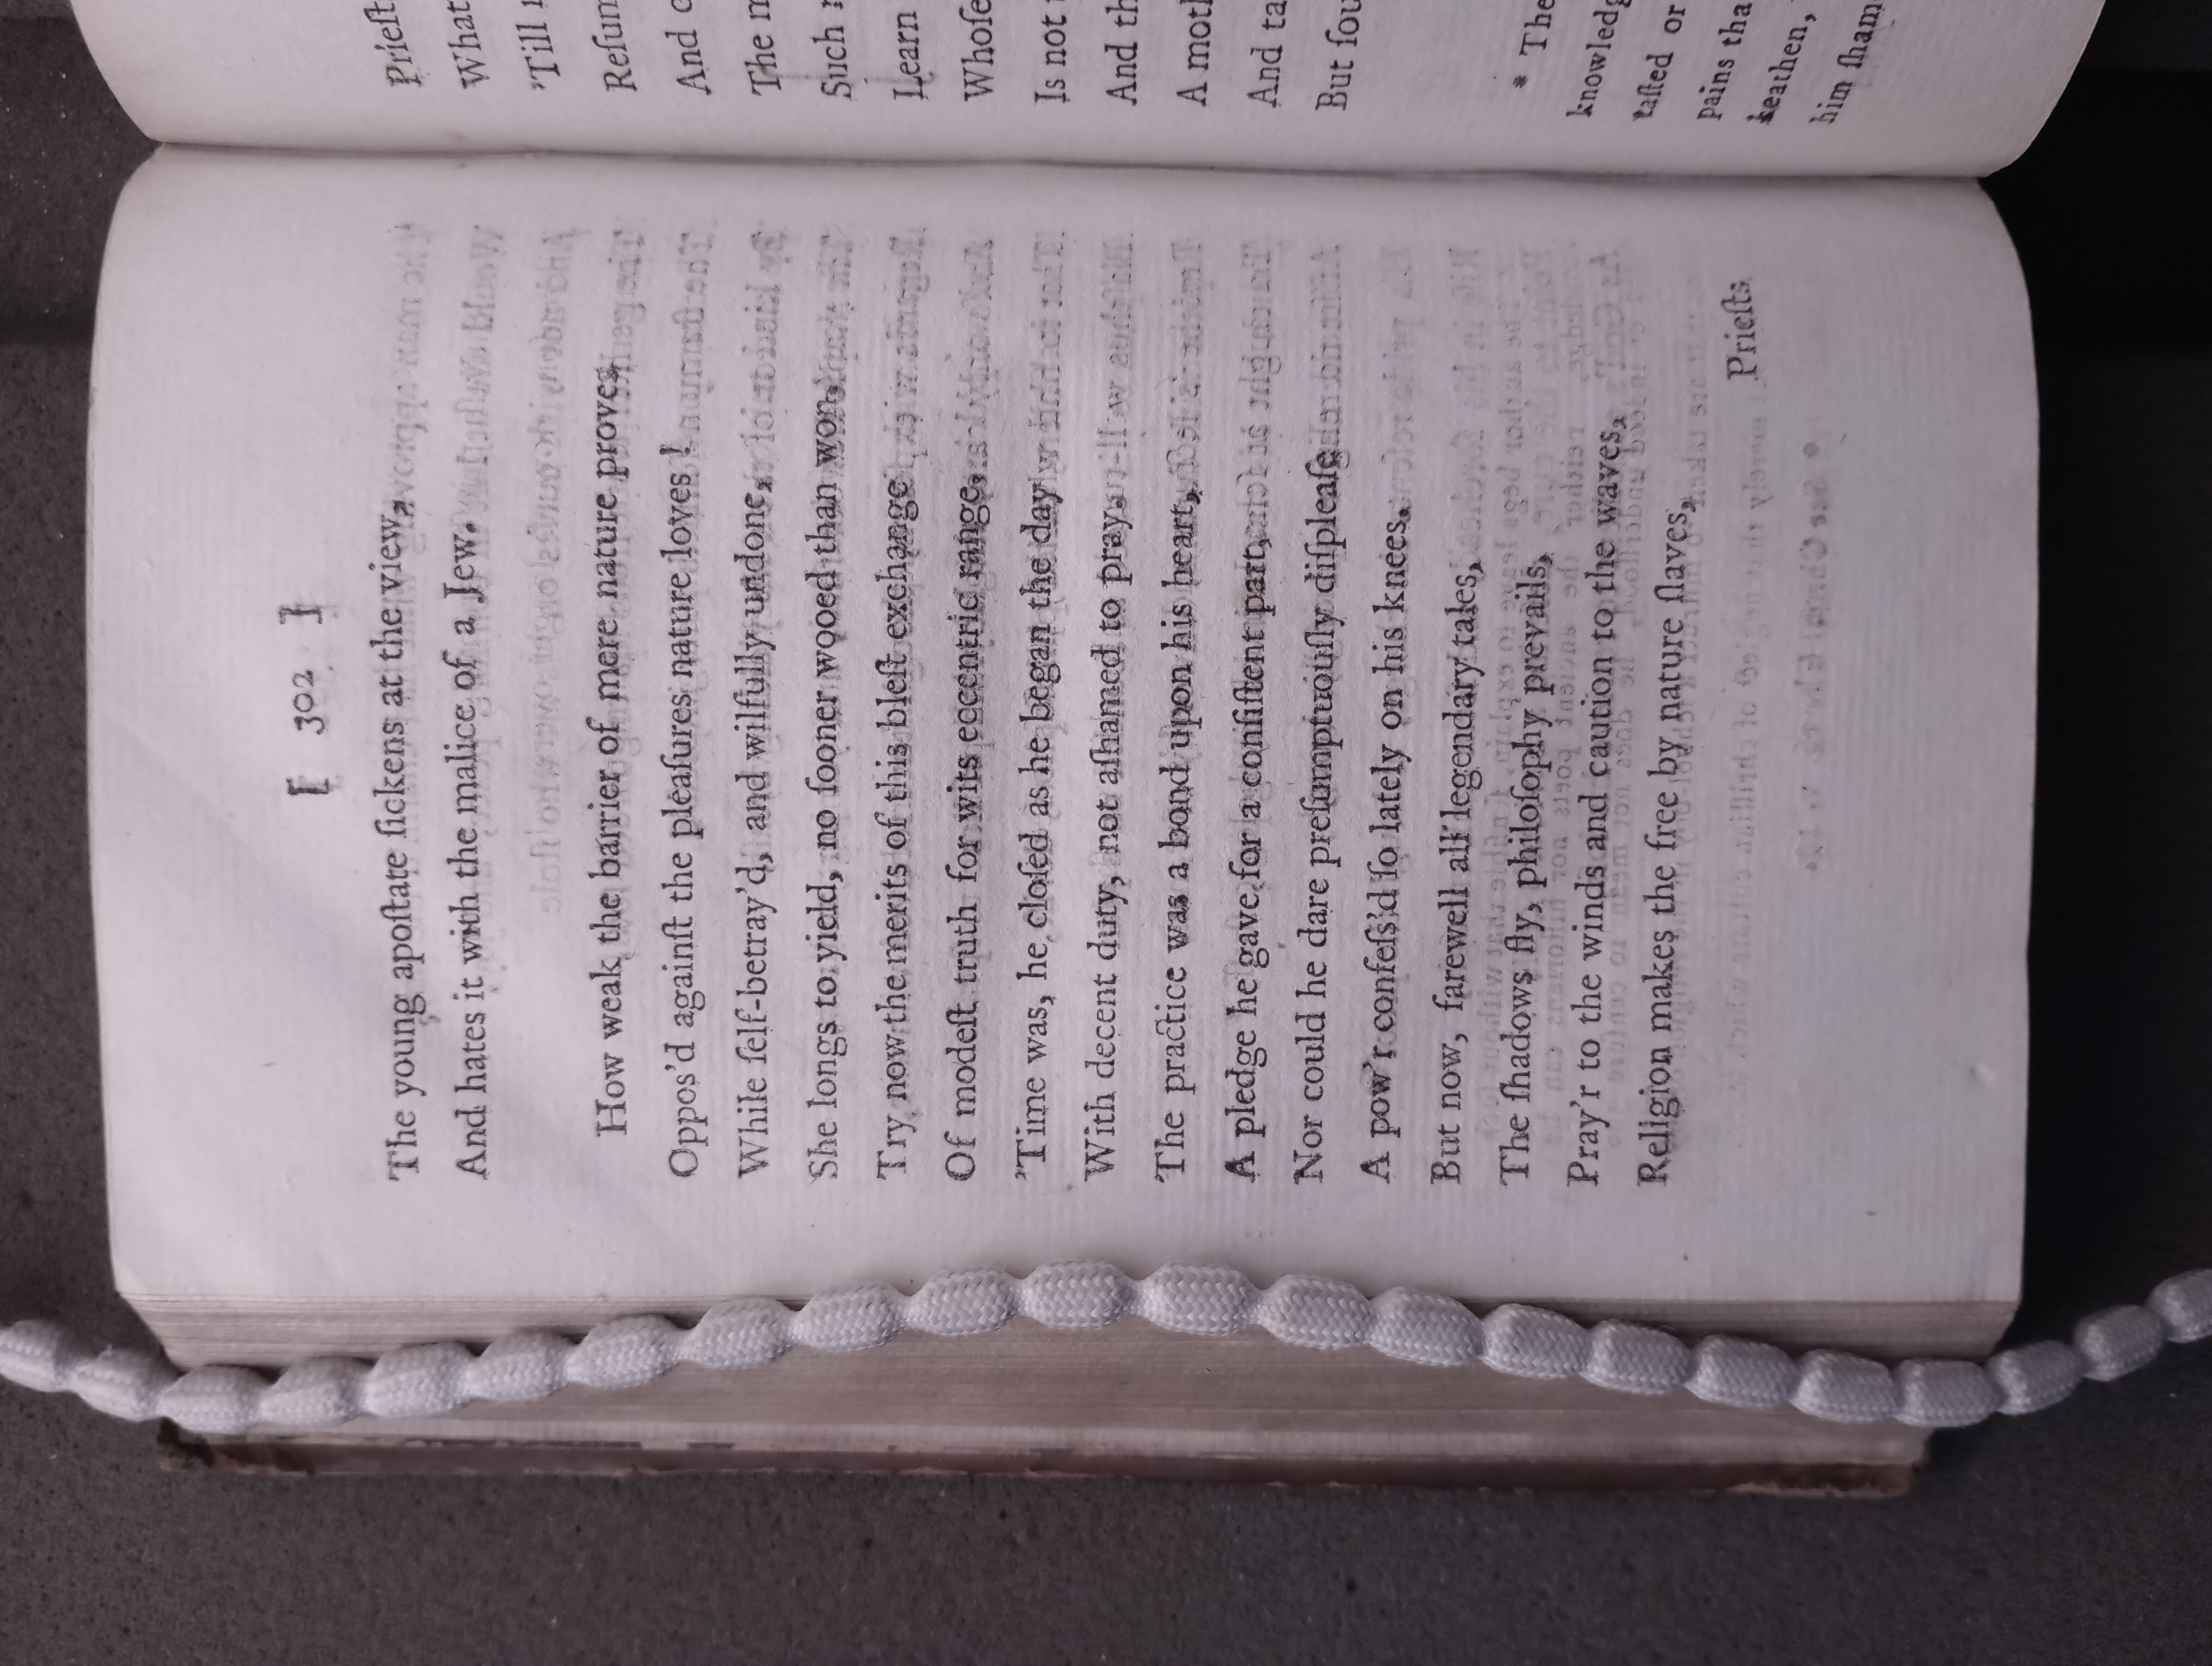 [ 302 ]
The young apoſtate ſickens at the view,
And hates it with the malice of a Jew.
How weak the barrier of mere nature proves
Oppos'd againſt the pleaſures nature loves!
While ſelf-betray'd, and wilfully undone,
She longs to yield, no ſooner wooed than won.
Try now the merits of this bleſt exchange
Of modeſt truth for wits eccentric range.
Time was, he cloſed as he began the day
With decent duty, not aſhamed to pray.
The practice was a bond upon his heart,
A pledge he gave for a conſiſtent part,
Nor could he dare preſumptuouſly diſpleaſe
A pow'r confeſs'd ſo lately on his knees.
But now, farewell all legendary tales,
The ſhadows fly, philoſophy prevails,
Pray'r to the winds and caution to the waves,
Religion makes the free by nature ſlaves,
Prieſts
Prieſt
What
'Till
Reſum
And
The
Such
Learn
Whoſe
Is not
And th
A moth
And ta
But ſou
* The
knowledg
taſted or
pains tha
heathen,
him ſham